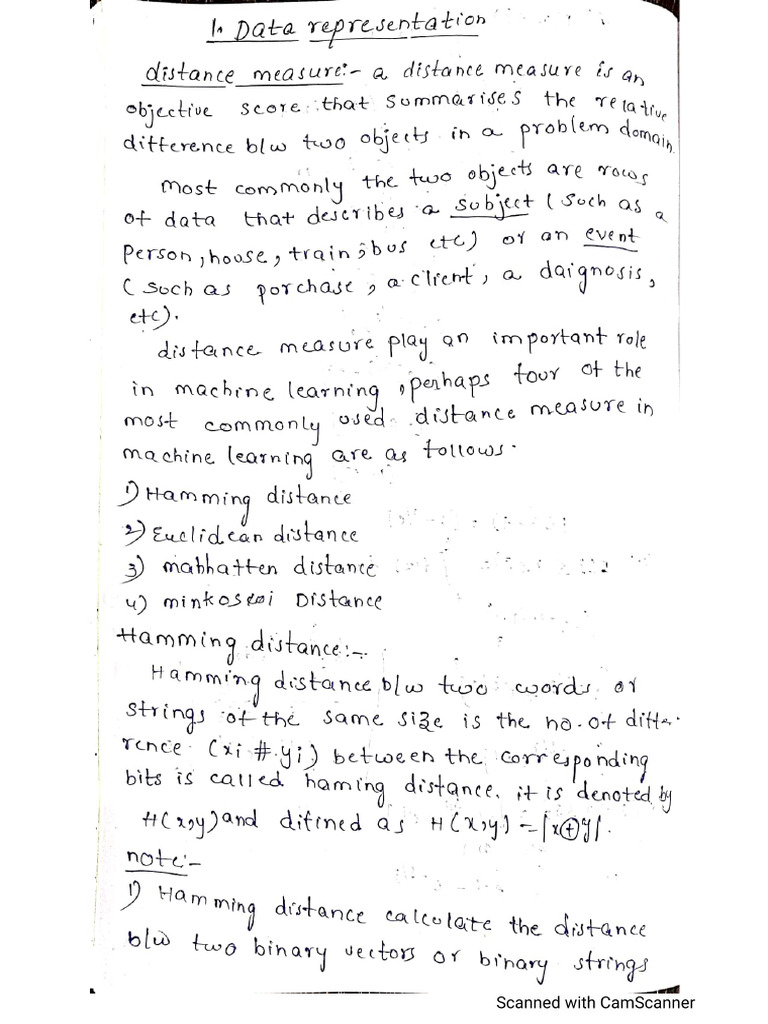 1. Data representation
distance measure:- a distance measure is an
objective score that summarises the relative
difference b/w two objects in a problem domain.
most commonly the two objects are rows
of data that describes a subject (such as a
person, house, train, bus etc) or an event
(such as porchase, a client, a daignosis,
etc).
distance measure play an important role
in machine learning, perhaps four of the
most commonly used distance measure in
machine learning are as follows.
1) Hamming distance
2) Euclidean distance
3) mahhatten distance
4) minkoswi Distance
Hamming distance:-
Hamming distance b/w two words or
strings of the same size is the no. of diffe-
rence (xi # yi) between the corresponding
bits is called haming distance. it is denoted by
H(x,y) and difined as H(x,y) = |x⊕y|.
note:-
1) Hamming distance calculate the distance
b/w two binary vectors or binary strings
Scanned with CamScanner